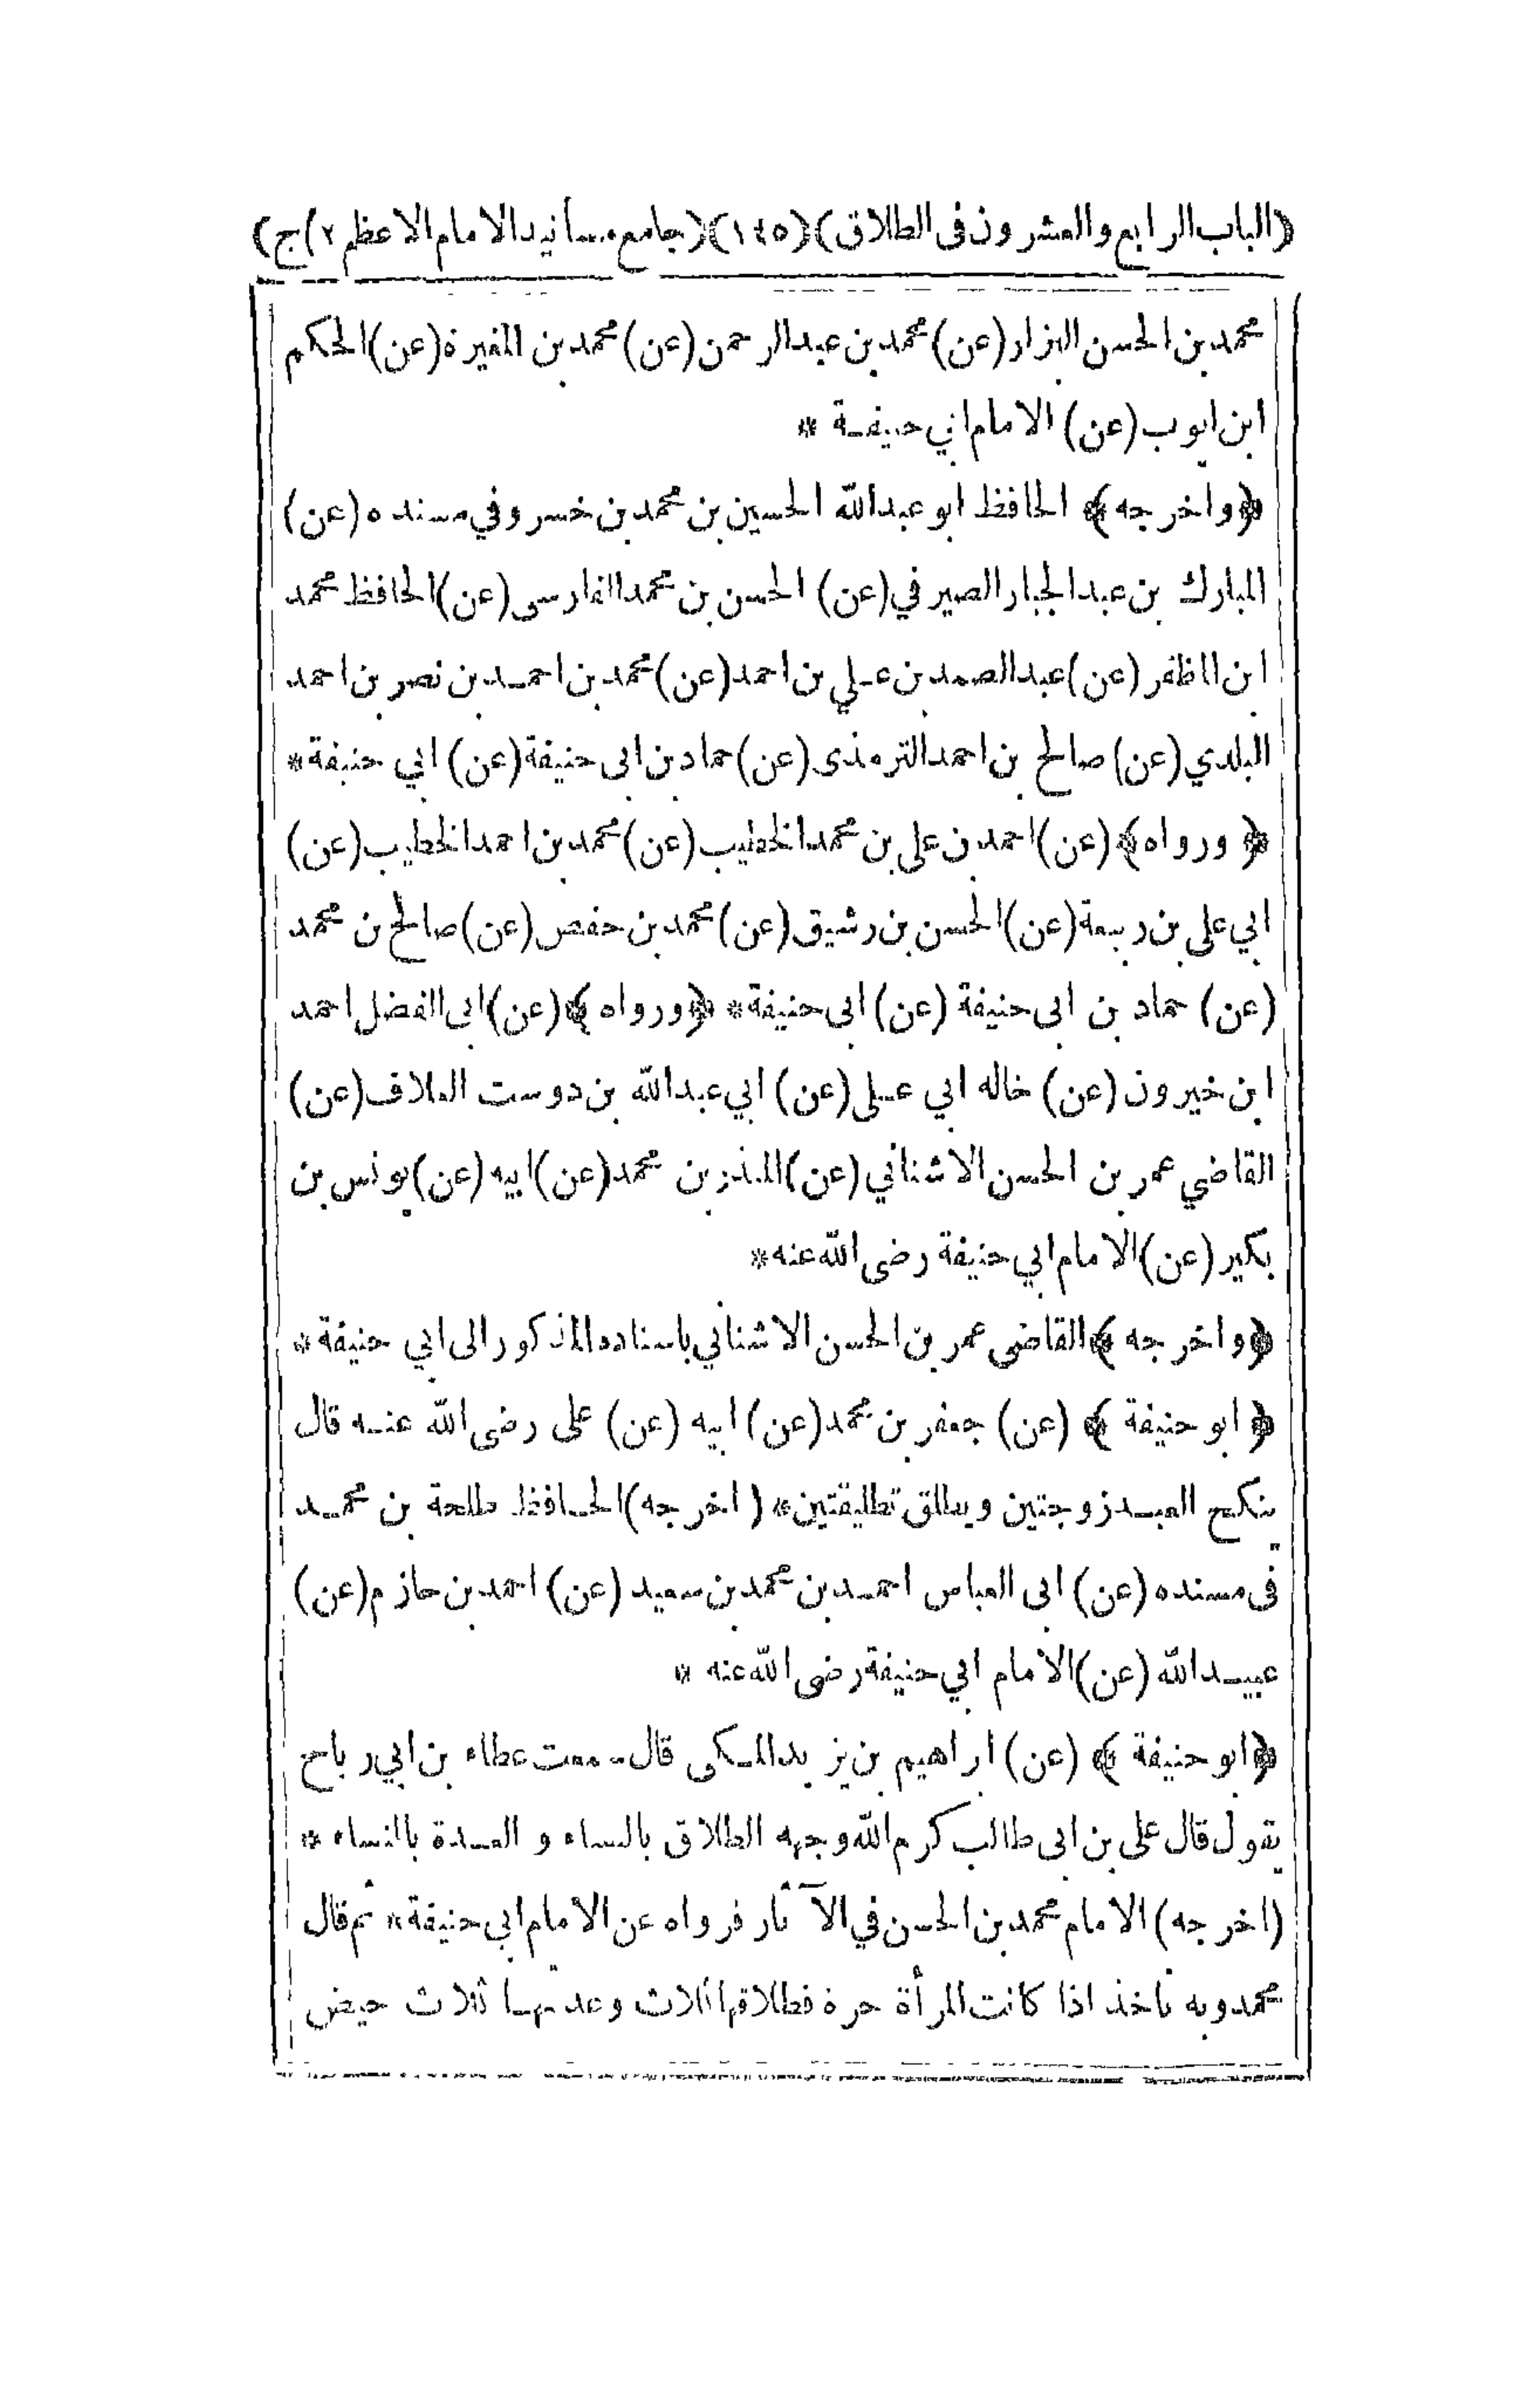 (الباب الرابع والعشرون فى الطلاق) (١٤٥) (جامع مسانيد الامام الاعظم ٢) ج)
محمد بن الحسن البزار (عن) محمد بن عبد الرحمن (عن) محمد بن المغيرة (عن) الحكم
ابن ايوب (عن) الامام ابي حنيفة *
﴿ واخرجه ﴾ الحافظ ابو عبد الله الحسين بن محمد بن خسرو في مسنده (عن)
المبارك بن عبد الجبار الصيرفي (عن) الحسن بن محمد الفارسى (عن) الحافظ محمد
ابن المظفر (عن) عبد الصمد بن علي بن احمد (عن) محمد بن احمد بن نصر بن احمد
البلدي (عن) صالح بن احمد الترمذى (عن) حماد بن ابى حنيفة (عن) ابي حنيفة *
﴿ ورواه ﴾ (عن) احمد بن على بن محمد الخطيب (عن) محمد بن احمد الخطيب (عن)
ابي على بن ربيعة (عن) الحسن بن رشيق (عن) محمد بن حفص (عن) صالح بن محمد
(عن) حماد بن ابى حنيفة (عن) ابى حنيفة * ﴿ ورواه ﴾ (عن) ابى الفضل احمد
ابن خيرون (عن) خاله ابي على (عن) ابي عبد الله بن دوست العلاف (عن)
القاضي عمر بن الحسن الاشناني (عن) المنذر بن محمد (عن) ابيه (عن) يونس بن
بكير (عن) الامام ابي حنيفة رضى الله عنه *
﴿ واخرجه ﴾ القاضى عمر بن الحسن الاشناني باسناده المذكور الى ابي حنيفة *
﴿ ابو حنيفة ﴾ (عن) جعفر بن محمد (عن) ابيه (عن) على رضى الله عنه قال
ينكح العبد زوجتين ويطلق تطليقتين * (اخرجه) الحافظ طلحة بن محمد
فى مسنده (عن) ابى العباس احمد بن محمد بن سعيد (عن) احمد بن حازم (عن)
عبيد الله (عن) الامام ابي حنيفة رضى الله عنه *
﴿ ابو حنيفة ﴾ (عن) ابراهيم بن يزيد المكى قال سمعت عطاء بن ابي رباح
يقول قال على بن ابى طالب كرم الله وجهه الطلاق بالنساء و العدة بالنساء *
(اخرجه) الامام محمد بن الحسن في الآثار فرواه عن الامام ابي حنيفة * ثم قال
محمد وبه ناخذ اذا كانت المرأة حرة فطلاقها ثلاث وعدتها ثلاث حيض